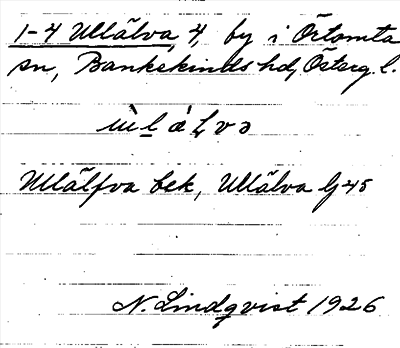 1-4 Ullälva, 4, by i Örtomta
sn, Bankekinds hd, Österg. l.
Ullälfva bek, Ullälva G 45
N. Lindqvist 1926